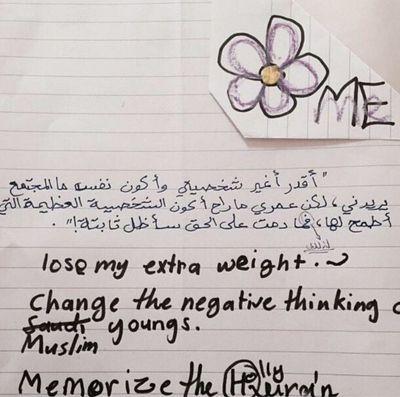 ME
"أقدر أغير شخصيتي وأكون نفسه ما المجتمع
يريدني، لكن عمري ما راح أكون الشخصية العظيمة التي
أطمح لها، فما دمت على الحق سأظل ثابتة!".
lose my extra weight.
Change the negative thinking
Saudi youngs.
Muslim
Memorize the Holly Qura'n